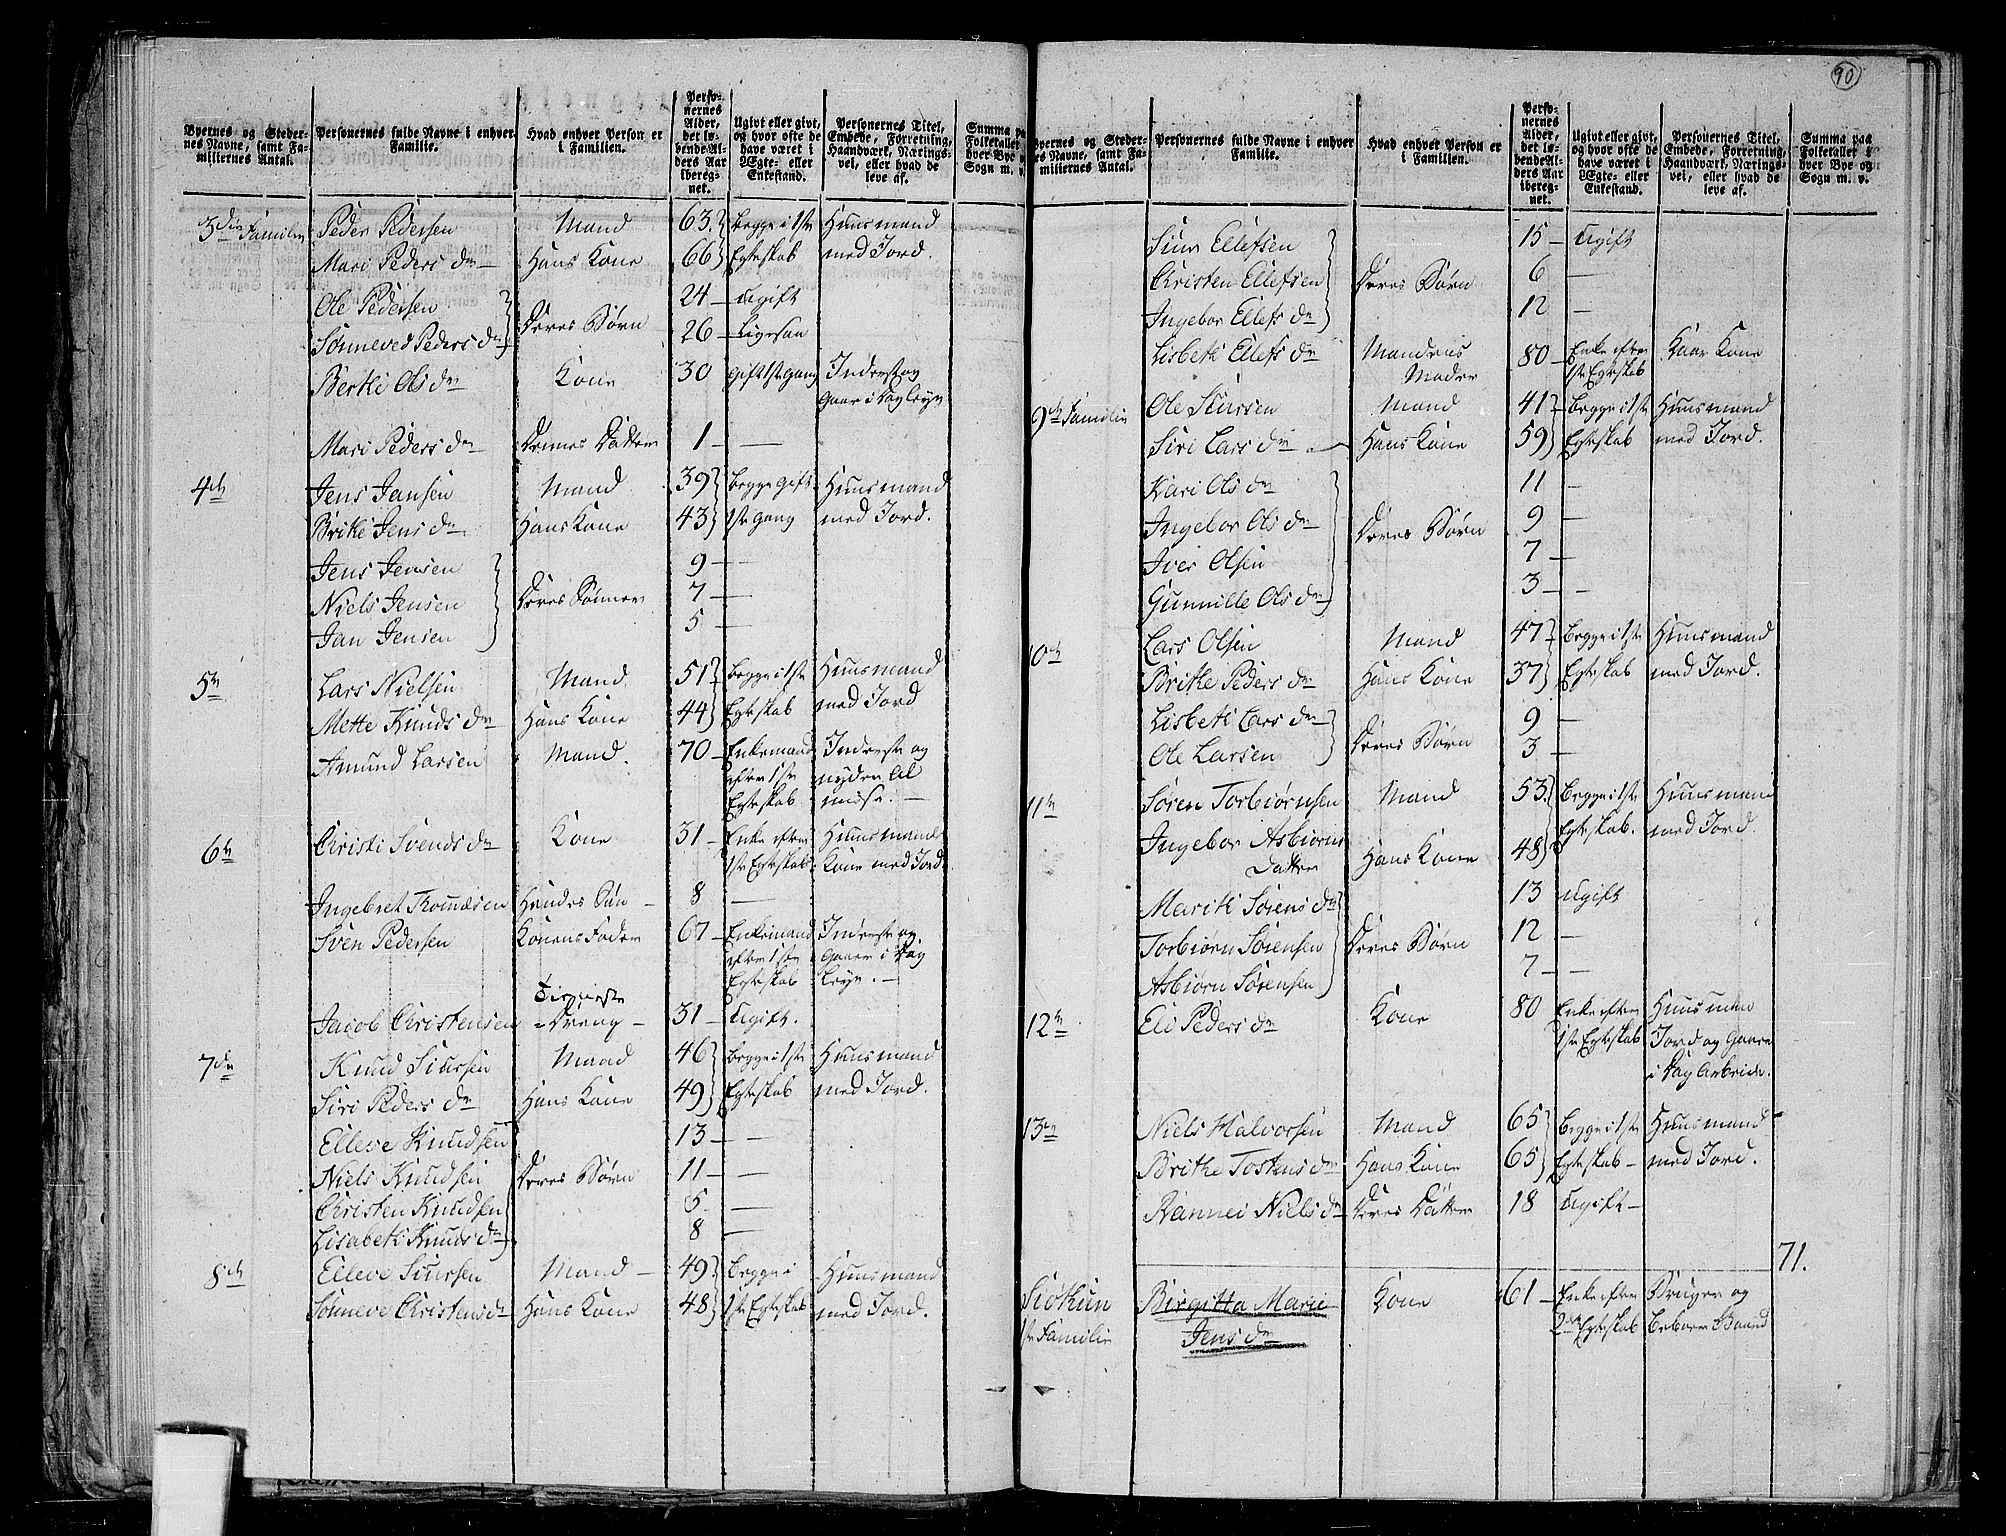 90
Byernes og Steder-
nes Navne, samt Fa-
miliernes Antal.
Personernes fulde Navne i enhver
Familie.
Hvad enhver Person er
i Familien.
Perso-
nernes
Alder,
det lø-
bende Al-
ders Aar
ibereg-
net.
Ugivt eller givt,
og hvor ofte de
have været i
Ægte- eller
Enkestand.
Personernes Titel,
Embede, Forretning,
Haandværk, Nærings-
vei, eller hvad de
leve af.
Summa paa
Folketallet i
hver Bye og
Sogn m. v.
3die Familie Peder Pedersen Mand 63 Begge i 1ste Huusmand
Mari Peders Dr Hans Kone 66 Egteskab med Jord.
Ole Pedersen 24 – Ugift
Deres Børn
Sønneved Peders Dr 26 – Ligesaa
Berthe Ols Dr Kone 30 Gift 1ste Gang Inderst og
Gaar i Dagleye
Mari Peders Dr Dennes Datter 1 —
4de Jens Jansen Mand 39 Begge Gift Huusmand
Brithe Jens Dr Hans Kone 43 1ste Gang med Jord.
Jens Jensen 9 —
Niels Jensen Deres Sønner 7 —
Jan Jensen 5 —
5te Lars Nielsen Mand 51 Begge i 1ste Huusmand
Mette Knuds Dr Hans Kone 44 Egteskab med Jord
Amund Larsen Mand. 70 – Enkemand Inderste og
efter 1ste nyder Al
Egteskab misse. —
6te Christi Svends Dr Kone 31 – Enke efter Huusmands
1ste Egteskab Kone med Jord
Ingebret Thomæsen Hendes Søn – 8 —
Sven Pedersen Konens Fader 67 – Enkemand Inderste og
efter 1ste Gaaer i Dag
Egteskab Leye. —
Tieneste
Jacob Christensen Dreng – 31 – Ugift.
7de Knud Siursen Mand 46 Begge i 1ste Huusmand
Siri Peders Dr Hans Kone 49 Egteskab med Jord.
Elleve Knudsen 13 —
Niels Knudsen Deres Børn 11 —
Christen Knudsen 5 —
Lisabeth Knuds Dr 8 —
8de Elleve Siursen Mand – 49 Begge i Huusmand
Sønneve Christens Dr Hans Kone 48 1ste Egteskab med Jord.
Byernes og Steder-
nes Navne, samt Fa-
miliernes Antal.
Personernes fulde Navne i enhver
Familie.
Hvad enhver Person er
i Familien.
Perso-
nernes
Alder,
det lø-
bende Al-
ders Aar
ibereg-
net.
Ugivt eller givt,
og hvor ofte de
have været i
Ægte- eller
Enkestand.
Personernes Titel,
Embede, Forretning,
Haandværk, Nærings-
vei, eller hvad de
leve af.
Summa paa
Folketallet i
hver Bye og
Sogn m. v.
Siur Ellefsen 15 – Ugift
Christen Ellefsen Deres Børn 6 —
Ingebor Ellefs Dr 12 —
Lisbeth Ellefs Dr Mandens 80 – Enke efter Kaar Kone
Moder 1ste Egteskab
9de Familie Ole Siursen Mand 41 Begge i 1ste Huusmand
Siri Lars Dr Hans Kone 59 Egteskab med Jord.
Kari Ols Dr 11 —
Ingebor Ols Dr Deres Børn 9 —
Iver Olsen 7 —
Gunnille Ols Dr 3 —
10de Lars Olsen Mand 47 Begge i 1ste Huusmand
Brithe Peders Dr Hans Kone 37 Egteskab med Jord.
Lisbeth Lars Dr 9 —
Deres Børn
Ole Larsen 3 —
11te Søren Torbiørnsen Mand 53 Begge i 1ste Huusmand
Ingebor Asbiørns Egteskab. med Jord.
Datter Hans Kone 48
Marith Sørens Dr 13 Ugift
Torbiørn Sørensen Deres Børn 12 —
Asbiørn Sørensen 7 —
12te Eli Peders Dr Kone 80 Enke efter Huus uden
1ste Egteskab Jord og Gaaer
i Dag Arbeide.
13de Niels Halvorsen Mand 65 Begge i 1ste Huusmand
Brithe Tostens Dr Hans Kone 65 Egteskab – med Jord.
Rannei Niels Dr Deres Datter 18 Ugift –
71.
Siøthun Birgitta Marie Kone 61 – Enke efter Bruger og
1ste Familie Jens Dr 2det Egteskab Beboer Gaard